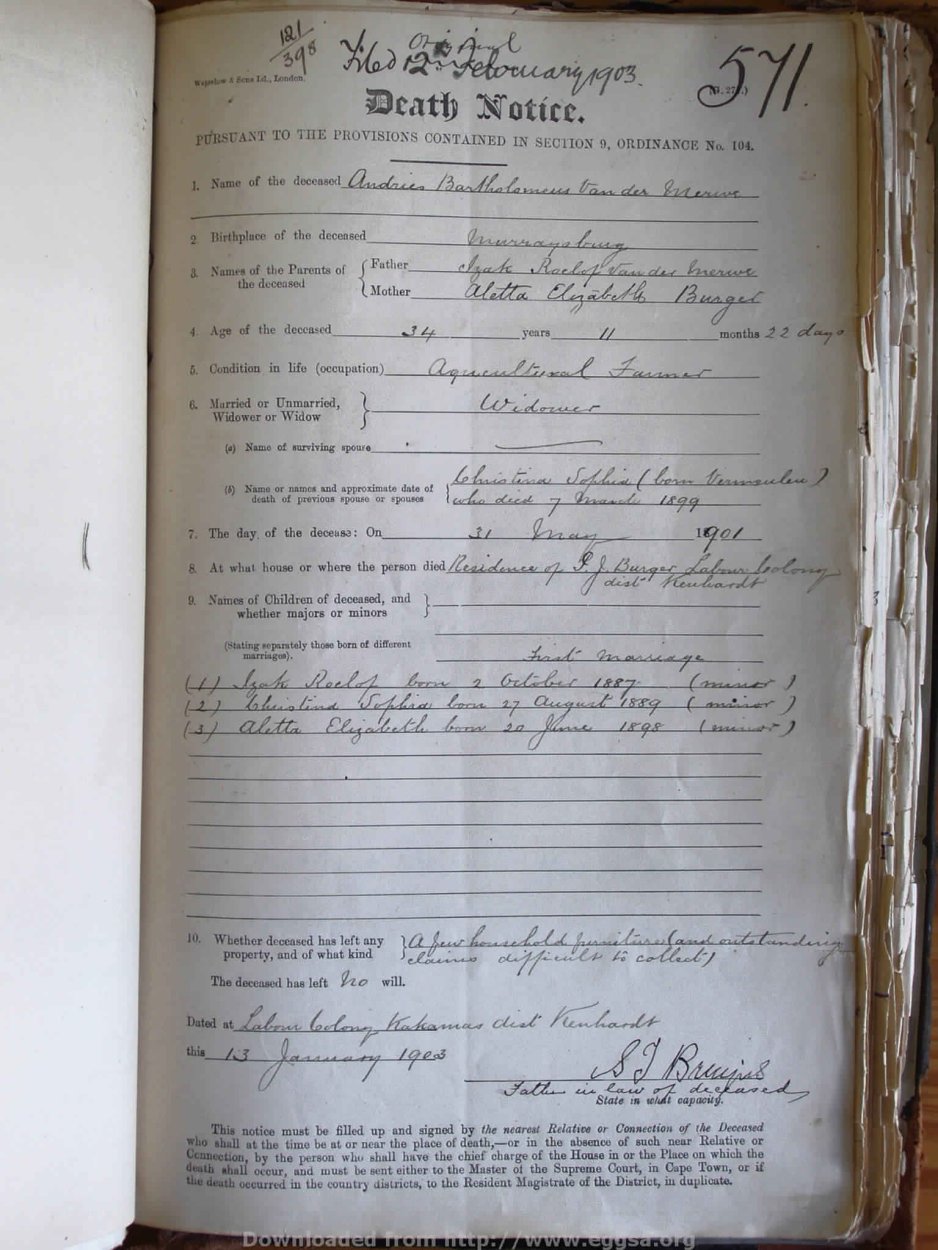 121
398
Original
Filed 12 February 1903.
571.
Waterlow & Sons Ld., London.
Death Notice.
PURSUANT TO THE PROVISIONS CONTAINED IN SECTION 9, ORDINANCE No. 104.
1. Name of the deceased Andries Bartholomeus Van der Merwe
2 Birthplace of the deceased Murraysburg
3. Names of the Parents of the deceased { Father Izak Roelof Van der Merwe
Mother Aletta Elizabeth Burger
4. Age of the deceased 34 years 11 months 22 days
5. Condition in life (occupation) Agricultural Farmer
6. Married or Unmarried, Widower or Widow } Widower
(a) Name of surviving spouse
(b) Name or names and approximate date of death of previous spouse or spouses { Christina Sophia (born Vermeulen)
who died 7 March 1899
7. The day of the decease: On 31 May 1901
8. At what house or where the person died Residence of J. Burger Labour Colony
dist Kenhardt
9. Names of Children of deceased, and whether majors or minors }
(Stating separately those born of different marriages). First Marriage
(1) Izak Roelof born 2 October 1887 (minor)
(2) Christina Sophia born 27 August 1889 (minor)
(3) Aletta Elizabeth born 20 June 1898 (minor)
10. Whether deceased has left any property, and of what kind } A few household furniture (and outstanding
claims difficult to collect)
The deceased has left No will.
Dated at Labour Colony Kakamas dist Kenhardt
this 13 January 1903
Father in law of deceased
State in what capacity.
This notice must be filled up and signed by the nearest Relative or Connection of the Deceased
who shall at the time be at or near the place of death,—or in the absence of such near Relative or
Connection, by the person who shall have the chief charge of the House in or the Place on which the
death shall occur, and must be sent either to the Master of the Supreme Court, in Cape Town, or if
the death occurred in the country districts, to the Resident Magistrate of the District, in duplicate.
Downloaded from http://www.eggsa.org